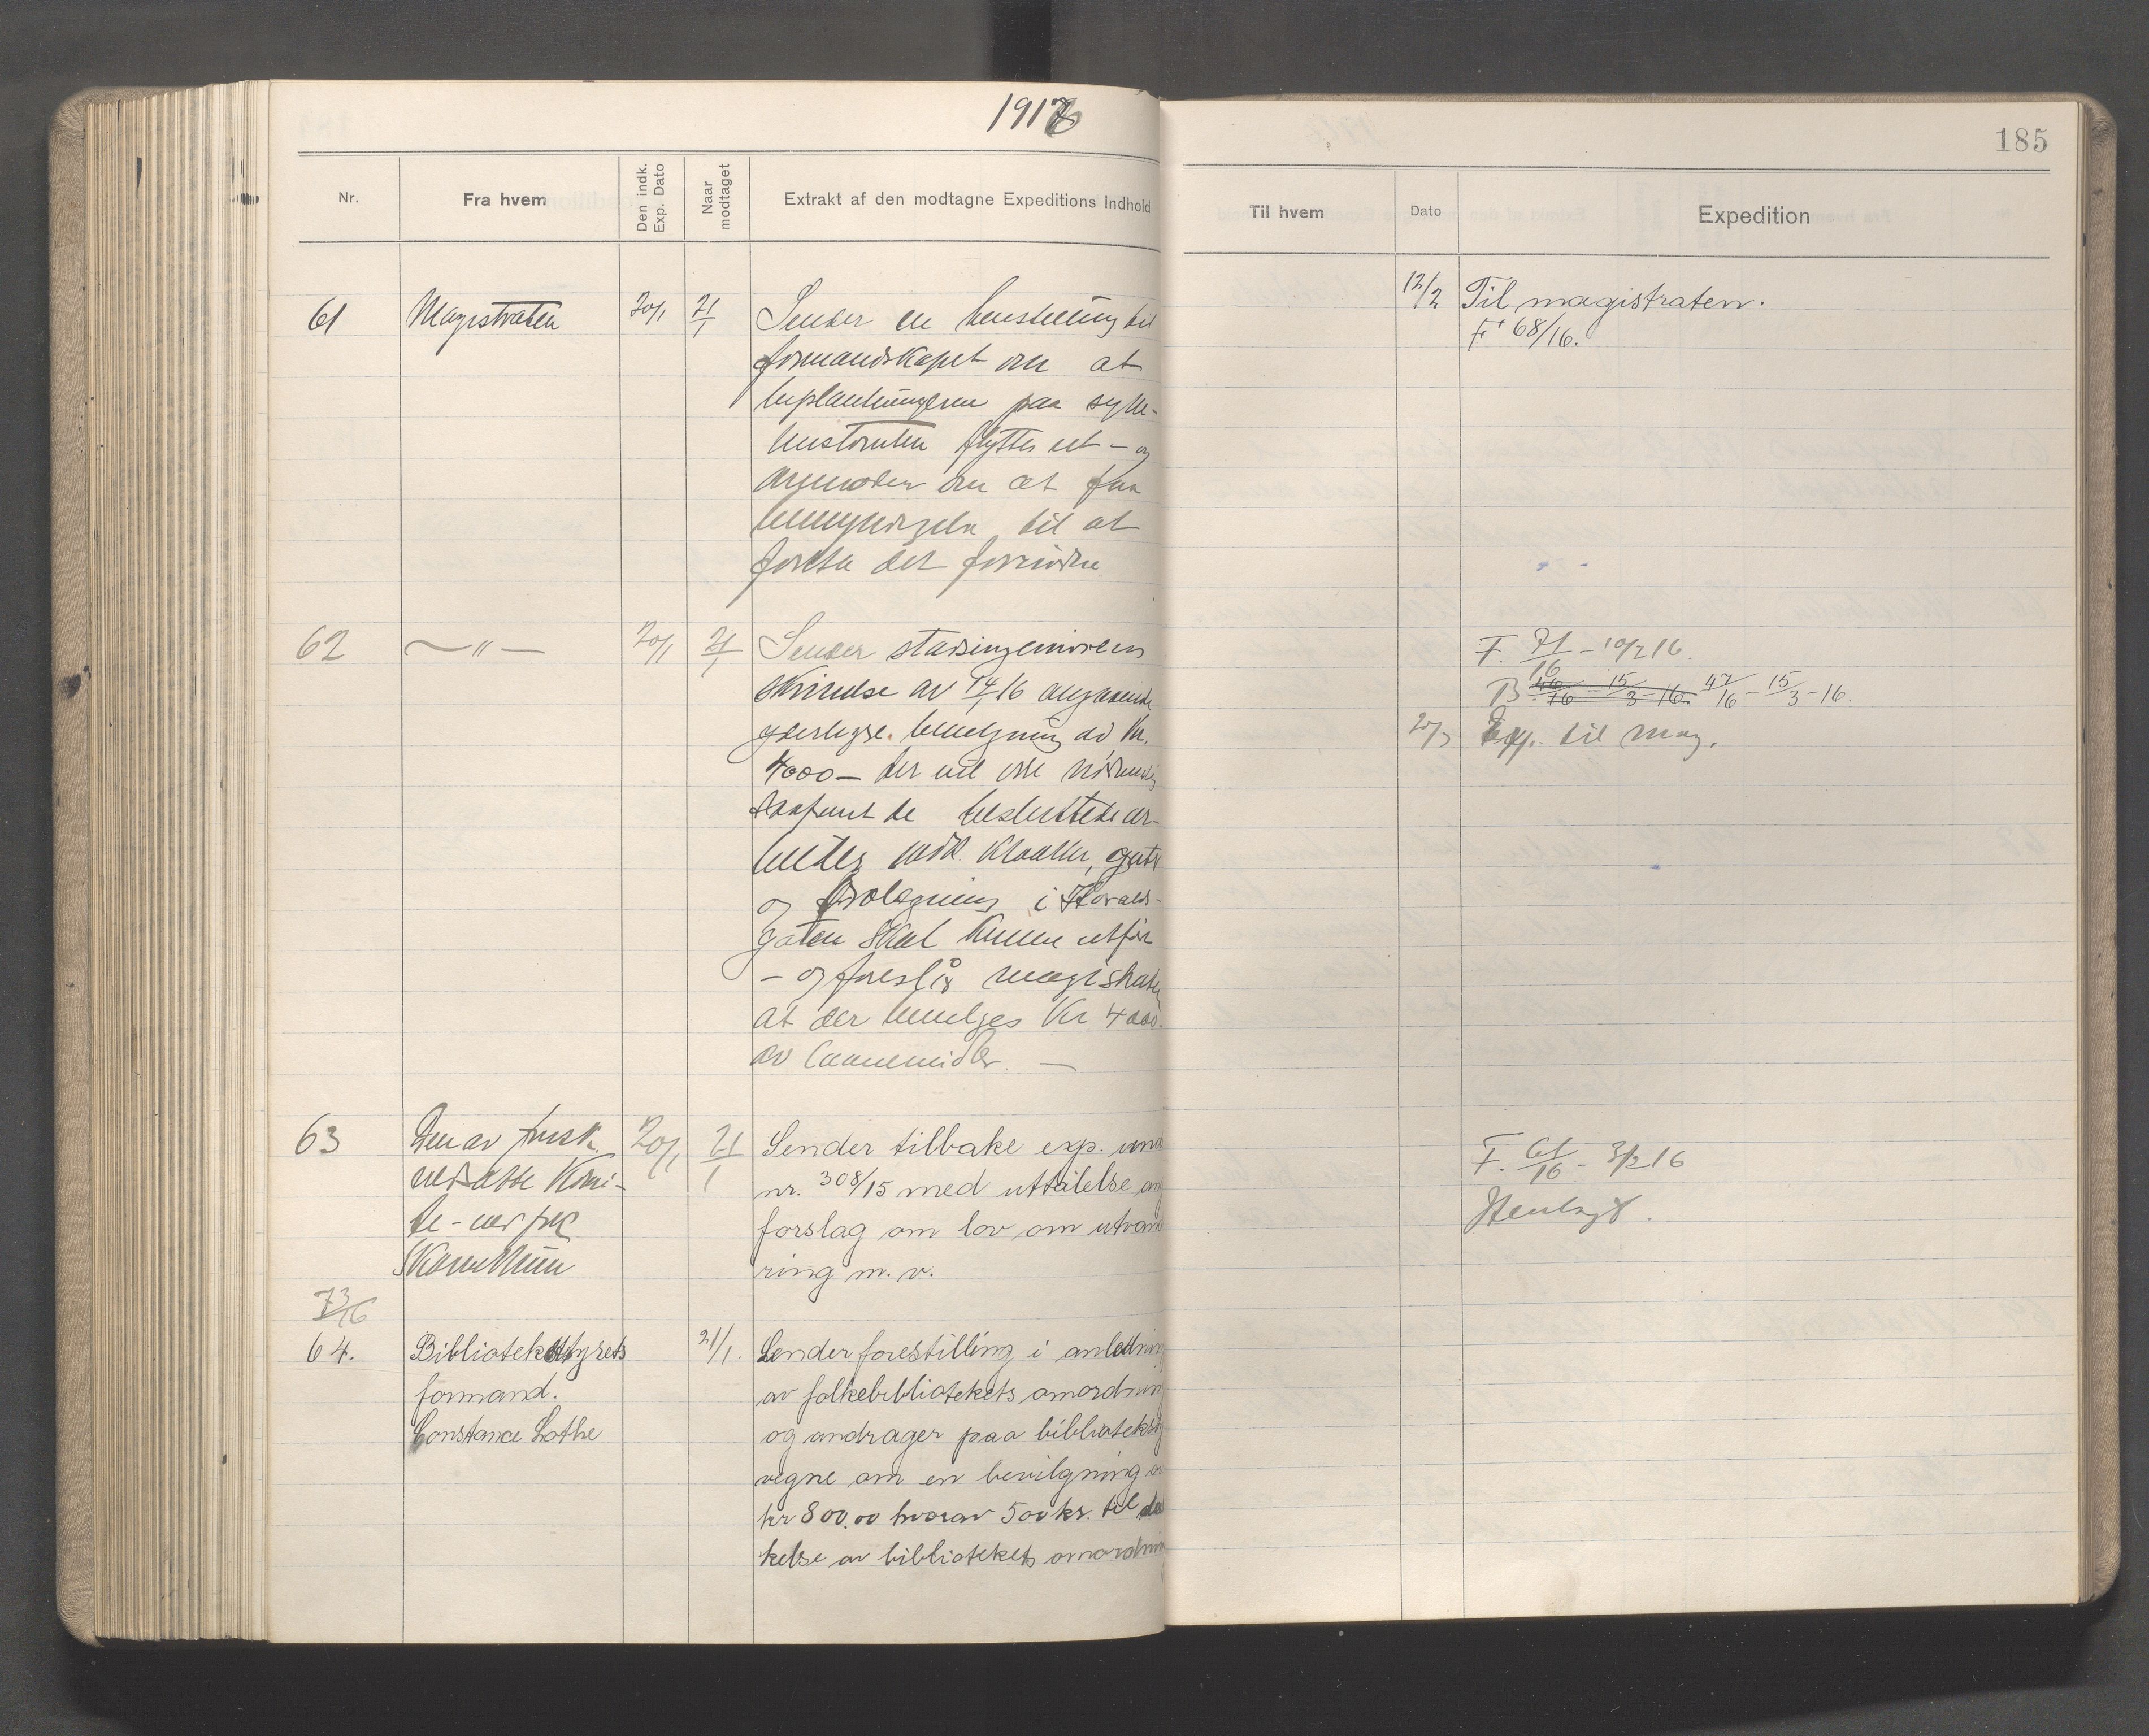 1916
185
Nr.
Fra hvem
Den indk.
Exp. Dato
Naar
modtaget
Extrakt af den modtagne Expeditions Indhold
Til hvem
Dato
Expedition
61
Magistraten
20/1
21/1
Sender en henstilling til
formandskapet om at
beplantningerne paa syke-
hustomten flyttes ut - og
anmoder om at faa
bemyndigelse til at
foreta det fornödne
12/2
Til magistraten.
F 68/16.
62
— " —
20/1
21/1
Sender stadsingeniörens
skrivelse av 14/1 16 angaaende
yderligre bevilgning av Kr.
4000 — der vil være nödvendig
saafremt de besluttede ar-
beider vedk. kloakker, gate
og brolægning i Haralds-
gaten skal kunne utföres
- og foreslår magistraten
at der bevilges Kr 4000.
av laanemidler. —
F. 71/16 - 10/2 16.
B 46/16 - 15/3 - 16. 47/16 - 15/3 - 16.
20/3
Exp. til mag.
63
Den av formsk.
nedsatte Komi-
te
20/1
21/1
Sender tilbake exp. und
nr. 308/15 med uttalelse ang
forslag om lov om utvand
ring m. v.
F. 61/16 - 3/2 16
Henlagt.
73/16
64.
Biblioteksstyrets
formand.
Constance Lothe
21/1.
Sender forestilling i anledning
av folkebibliotekets omordning
og andrager paa bibliotekets
vegne om en bevilgning av
kr 800.00 hvorav 500 kr. til dæ
kelse av bibliotekets omordning